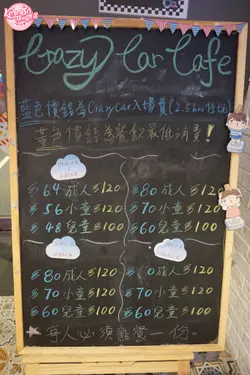 Crazy Car Cafe
藍色價錢為Crazy Car入場費(2.5hr任玩)
黃色價錢為餐飲最低消費!
$64 成人 $120 $80 成人 $120
$56 小童 $120 $70 小童 $120
$48 兒童 $100 $60 兒童 $100
$80 成人 $120 成人 $120
$70 小童 $120 $70 小童 $120
$60 兒童 $100 $60 兒童 $100
每人必須 一份